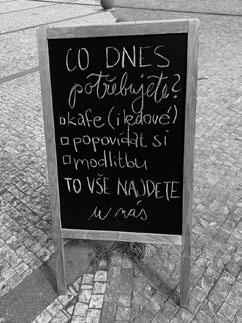 CO DNES
potřebujete?
□ kafe (i ledové)
□ popovídat si
□ modlitbu
TO VŠE NAJDETE
u nás